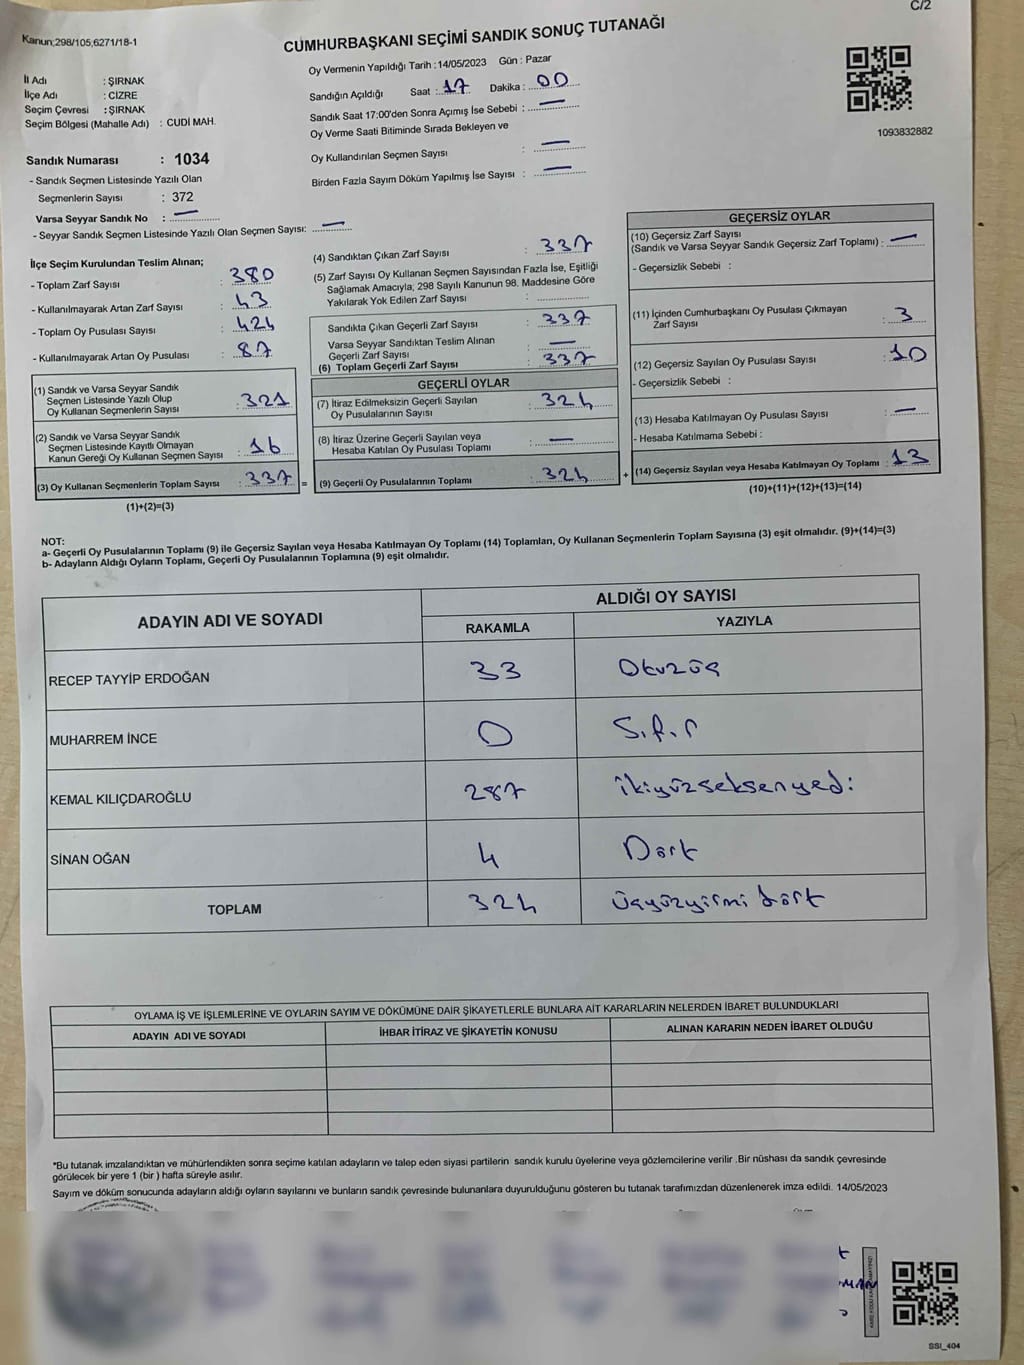 C/2
Kanun;298/105,6271/18-1
CUMHURBAŞKANI SEÇİMİ SANDIK SONUÇ TUTANAĞI
İl Adı : ŞIRNAK
İlçe Adı : CİZRE
Seçim Çevresi : ŞIRNAK
Seçim Bölgesi (Mahalle Adı) : CUDİ MAH.
Sandık Numarası : 1034
- Sandık Seçmen Listesinde Yazılı Olan
Seçmenlerin Sayısı : 372
Varsa Seyyar Sandık No : —
- Seyyar Sandık Seçmen Listesinde Yazılı Olan Seçmen Sayısı: —
Oy Vermenin Yapıldığı Tarih : 14/05/2023 Gün : Pazar
Sandığın Açıldığı Saat : 17 Dakika : 00
Sandık Saat 17:00'den Sonra Açımış İse Sebebi : —
Oy Verme Saati Bitiminde Sırada Bekleyen ve
Oy Kullandırılan Seçmen Sayısı : —
Birden Fazla Sayım Döküm Yapılmış İse Sayısı : —
1093832882
İlçe Seçim Kurulundan Teslim Alınan;
- Toplam Zarf Sayısı : 380
- Kullanılmayarak Artan Zarf Sayısı : 43
- Toplam Oy Pusulası Sayısı : 424
- Kullanılmayarak Artan Oy Pusulası : 87
(1) Sandık ve Varsa Seyyar Sandık
Seçmen Listesinde Yazılı Olup
Oy Kullanan Seçmenlerin Sayısı : 321
(2) Sandık ve Varsa Seyyar Sandık
Seçmen Listesinde Kayıtlı Olmayan
Kanun Gereği Oy Kullanan Seçmen Sayısı : 16
(3) Oy Kullanan Seçmenlerin Toplam Sayısı : 337 =
(1)+(2)=(3)
(4) Sandıktan Çıkan Zarf Sayısı : 337
(5) Zarf Sayısı Oy Kullanan Seçmen Sayısından Fazla İse, Eşitliği
Sağlamak Amacıyla; 298 Sayılı Kanunun 98. Maddesine Göre
Yakılarak Yok Edilen Zarf Sayısı :
Sandıkta Çıkan Geçerli Zarf Sayısı : 337
Varsa Seyyar Sandıktan Teslim Alınan
Geçerli Zarf Sayısı : —
(6) Toplam Geçerli Zarf Sayısı : 337
GEÇERLİ OYLAR
(7) İtiraz Edilmeksizin Geçerli Sayılan
Oy Pusulalarının Sayısı : 324
(8) İtiraz Üzerine Geçerli Sayılan veya
Hesaba Katılan Oy Pusulası Toplamı : —
(9) Geçerli Oy Pusulalarının Toplamı : 324 +
GEÇERSİZ OYLAR
(10) Geçersiz Zarf Sayısı
(Sandık ve Varsa Seyyar Sandık Geçersiz Zarf Toplamı) : —
- Geçersizlik Sebebi :
(11) İçinden Cumhurbaşkanı Oy Pusulası Çıkmayan
Zarf Sayısı : 3
(12) Geçersiz Sayılan Oy Pusulası Sayısı : 10
- Geçersizlik Sebebi :
(13) Hesaba Katılmayan Oy Pusulası Sayısı : —
- Hesaba Katılmama Sebebi :
(14) Geçersiz Sayılan veya Hesaba Katılmayan Oy Toplamı : 13
(10)+(11)+(12)+(13)=(14)
NOT:
a- Geçerli Oy Pusulalarının Toplamı (9) ile Geçersiz Sayılan veya Hesaba Katılmayan Oy Toplamı (14) Toplamları, Oy Kullanan Seçmenlerin Toplam Sayısına (3) eşit olmalıdır. (9)+(14)=(3)
b- Adayların Aldığı Oyların Toplamı, Geçerli Oy Pusulalarının Toplamına (9) eşit olmalıdır.
ADAYIN ADI VE SOYADI ALDIĞI OY SAYISI
RAKAMLA YAZIYLA
RECEP TAYYİP ERDOĞAN 33 Otuzüç
MUHARREM İNCE 0 Sıfır
KEMAL KILIÇDAROĞLU 287 ikiyüzseksenyedi
SİNAN OĞAN 4 Dört
TOPLAM 324 Üçyüzyirmi dört
OYLAMA İŞ VE İŞLEMLERİNE VE OYLARIN SAYIM VE DÖKÜMÜNE DAİR ŞİKAYETLERLE BUNLARA AİT KARARLARIN NELERDEN İBARET BULUNDUKLARI
ADAYIN ADI VE SOYADI İHBAR İTİRAZ VE ŞİKAYETİN KONUSU ALINAN KARARIN NEDEN İBARET OLDUĞU
*Bu tutanak imzalandıktan ve mühürlendikten sonra seçime katılan adayların ve talep eden siyasi partilerin sandık kurulu üyelerine veya gözlemcilerine verilir .Bir nüshası da sandık çevresinde
görülecek bir yere 1 (bir ) hafta süreyle asılır.
Sayım ve döküm sonucunda adayların aldığı oyların sayılarını ve bunların sandık çevresinde bulunanlara duyurulduğunu gösteren bu tutanak tarafımızdan düzenlenerek imza edildi. 14/05/2023
SSI_404